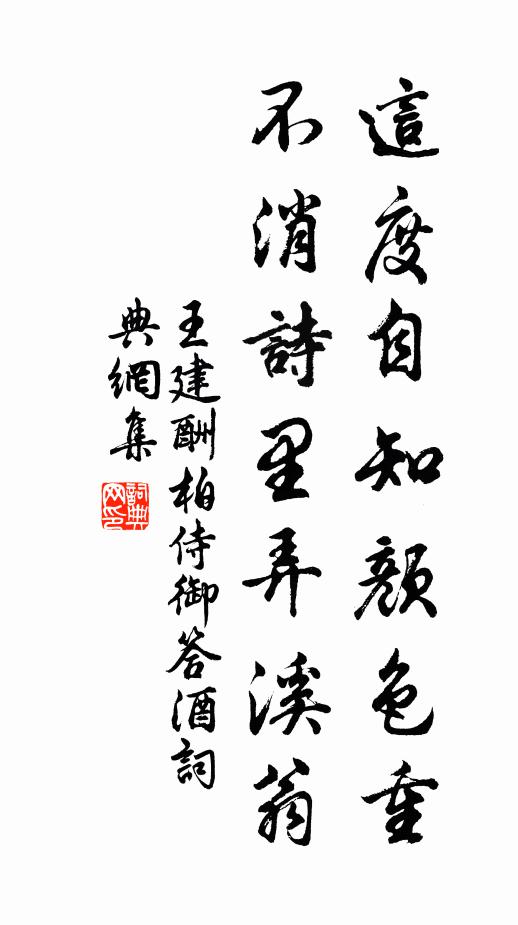 這度自知顏色重
不消詩里弄溪翁
王建酬柏侍御答酒詞
典網集
詞典
网印